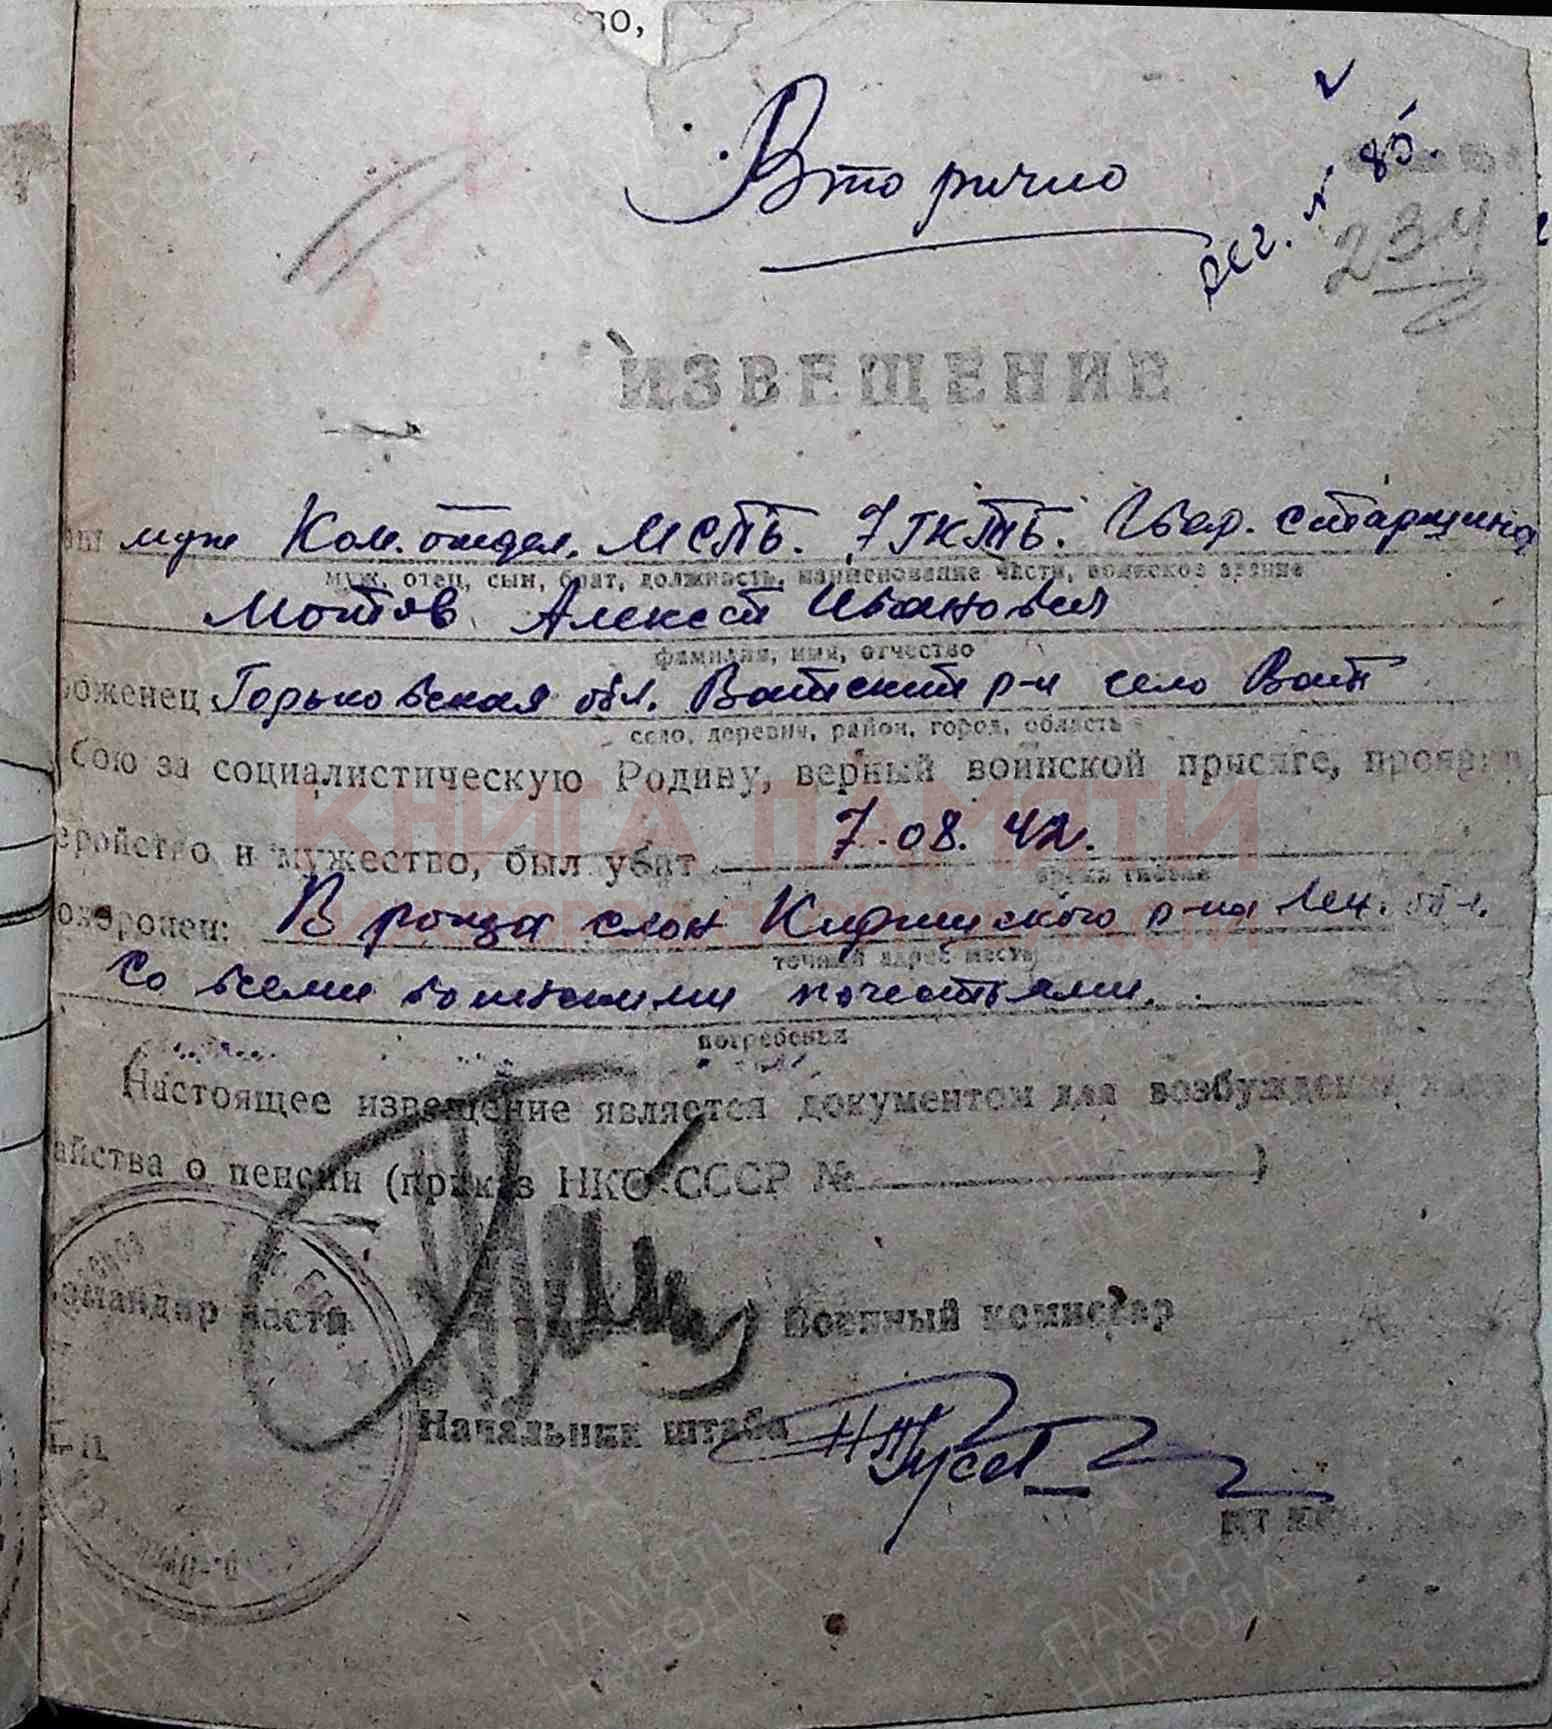 во,
Вторично
рег. № 85.
234
ИЗВЕЩЕНИЕ
муж Ком. отдел. МСПБ. 7 ГКТБ. Гвар. старшина
муж, отец, сын, брат, должность, наименование части, воинское звание
Мотов Алексей Иванович
фамилия, имя, отчество
оженец Горьковская обл. Вачский р-н село Вач
село, деревня, район, город, область
бою за социалистическую Родину, верный воинской присяге, прояви
еройство и мужество, был убит 7.08.42.
время гибели
охоронен: В роща слон Киришского р-на Лен. обл.
точный адрес места
Со всеми воинскими почестями.
погребения
Настоящее извещение является документом для возбуждения
айства о пенсии (приказ НКО СССР №)
омандир части Военный комиссар
Начальник штаба
КНИГА ПАМЯТИ
ПАМЯТЬ НАРОДА